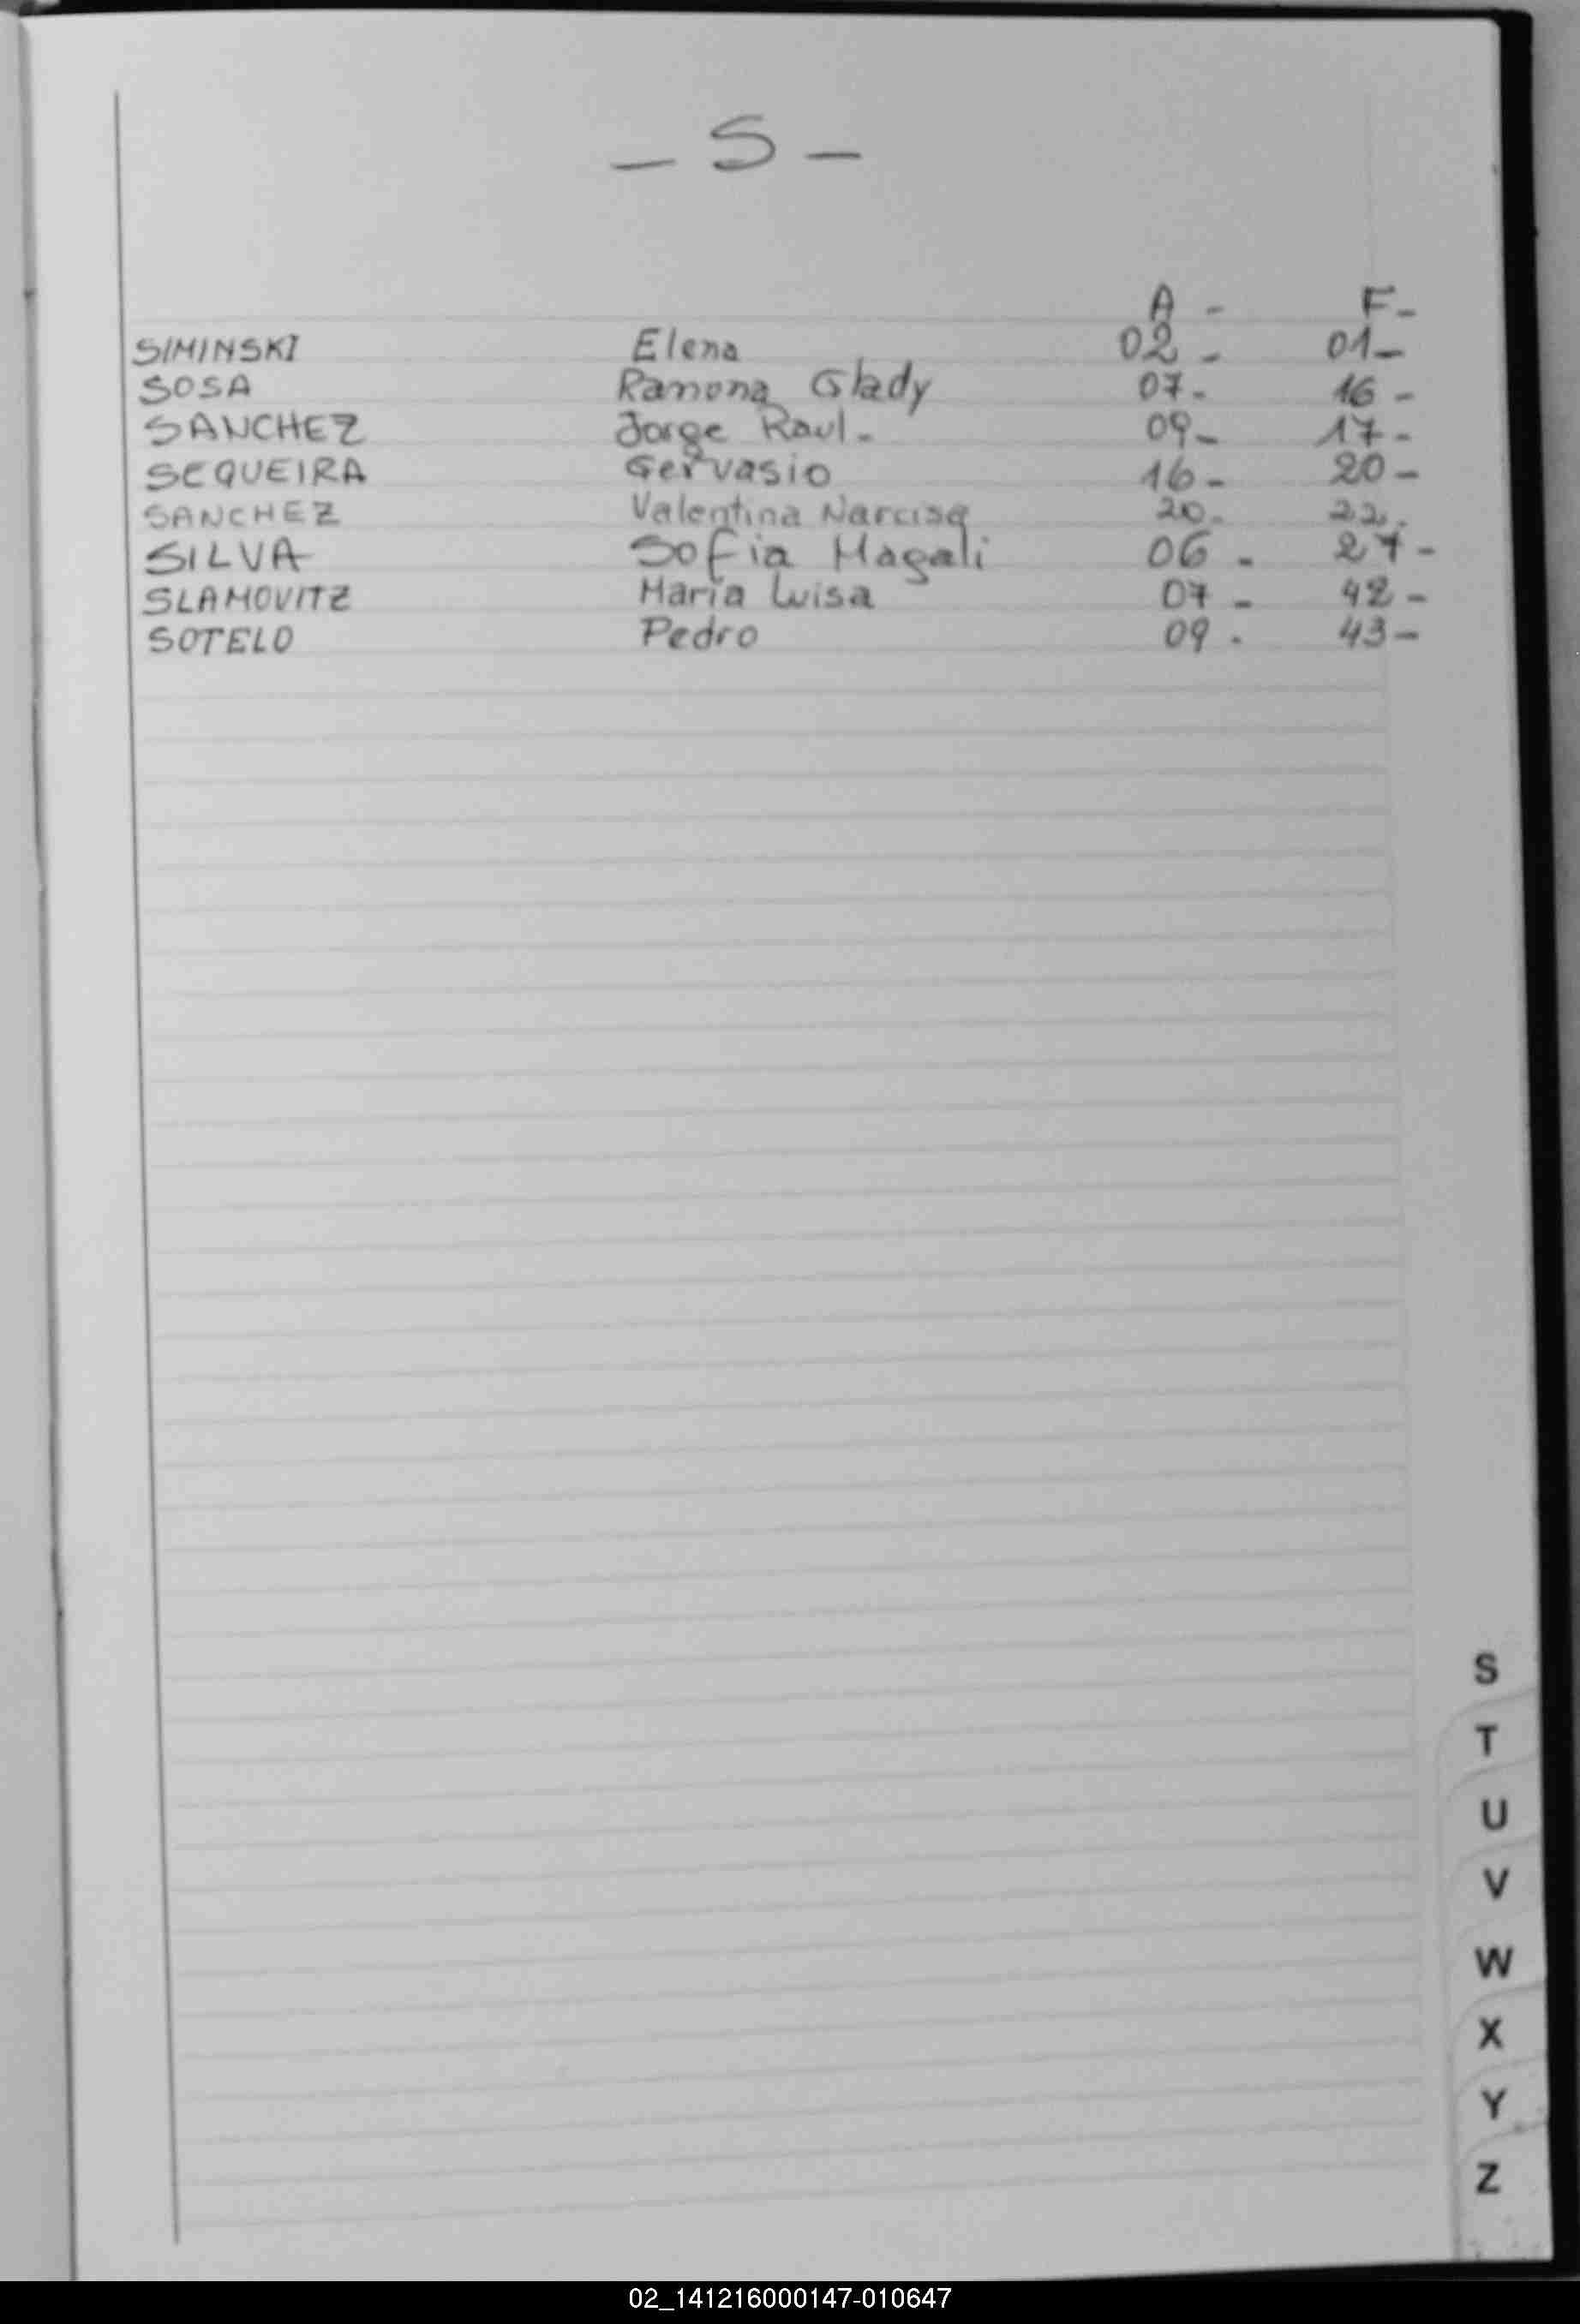 - S -
A - F-
SIMINSKI Elena 02 - 01-
SOSA Ramona Glady 07- 16 -
SANCHEZ Jorge Raul- 09- 17-
SEQUEIRA Gervasio 16- 20-
SANCHEZ Valentina Narcisa 20- 22-
SILVA Sofia Magali 06 - 27-
SLAMOVITZ María Luisa 07 - 42-
SOTELO Pedro 09 - 43-
S
T
U
V
W
X
Y
Z
02_141216000147-010647